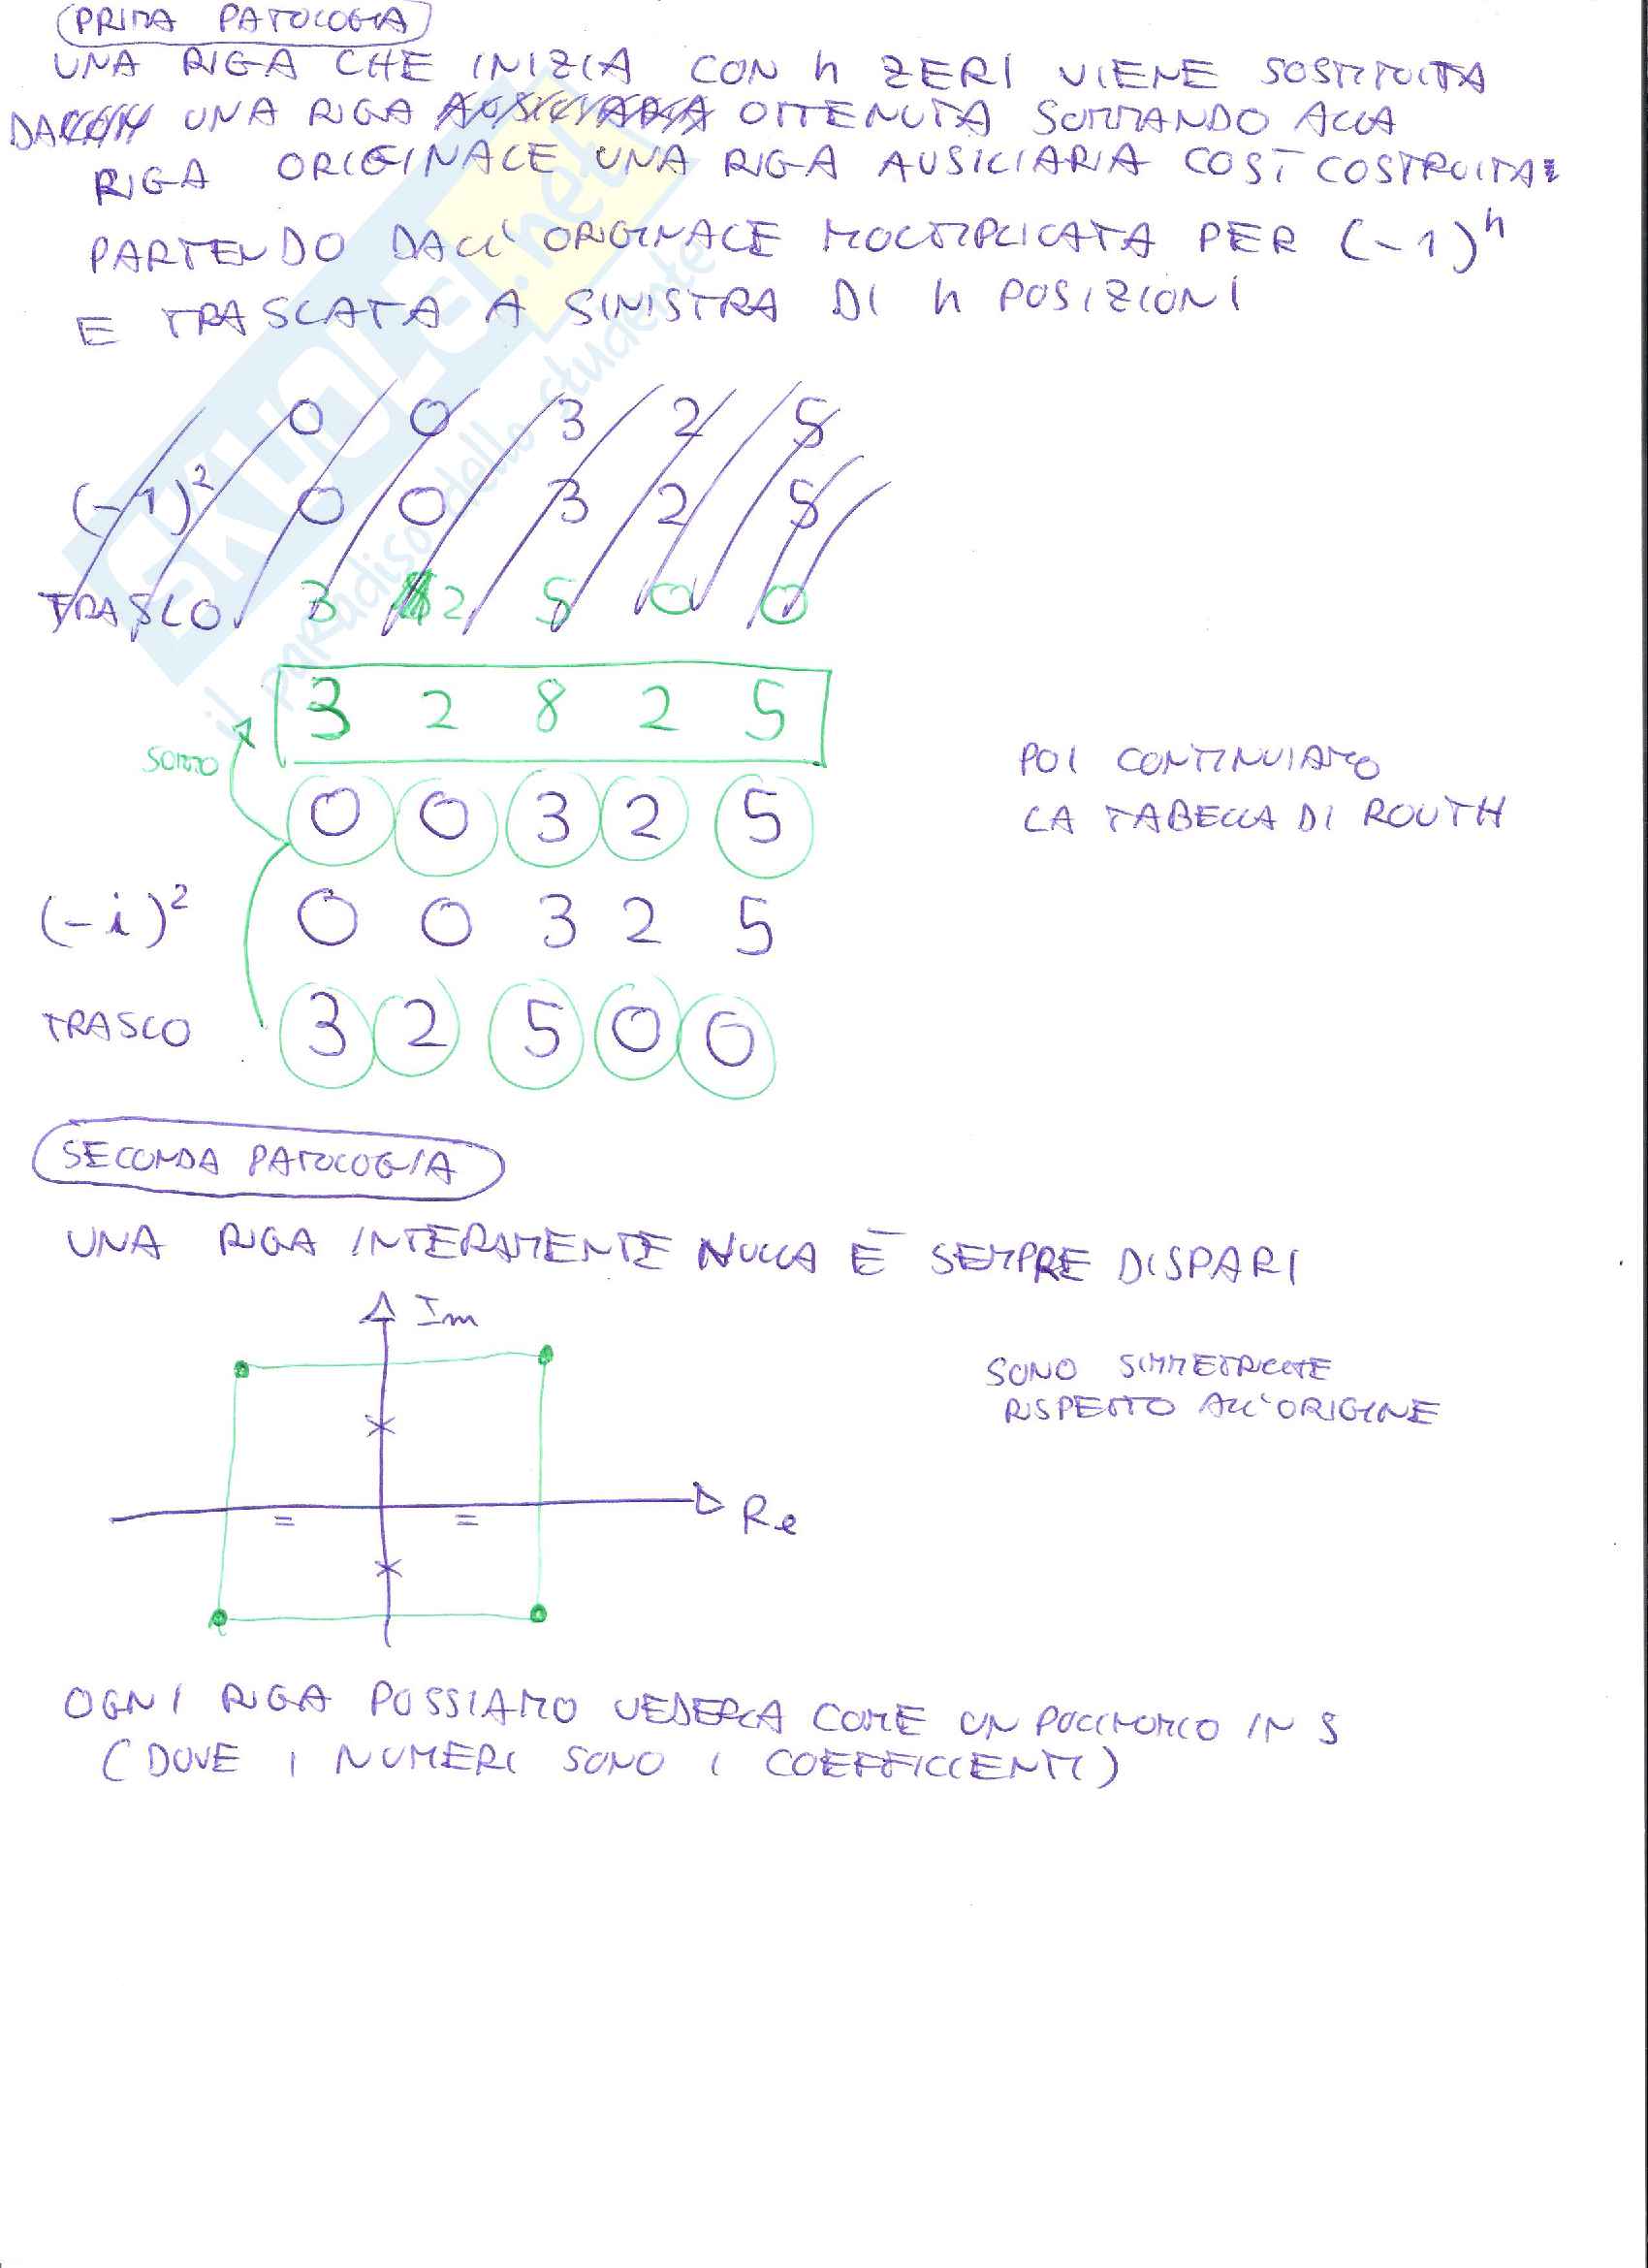 PRIMA PATOLOGIA
UNA RIGA CHE INIZIA CON h ZERI VIENE SOSTITUITA
DA UNA RIGA AUSILIARIA OTTENUTA SOMMANDO ALLA
RIGA ORIGINALE UNA RIGA AUSILIARIA COSÌ COSTRUITA:
PARTENDO DALL'ORIGINALE MOLTIPLICATA PER (-1)^h
E TRASLATA A SINISTRA DI h POSIZIONI
0 0 3 2 5
(-1)² 0 0 3 2 5
TRASLO 3 2 5 0 0
3 2 8 2 5
SOMMO
0 0 3 2 5
POI CONTINUIAMO
LA TABELLA DI ROUTH
(-1)² 0 0 3 2 5
TRASLO 3 2 5 0 0
SECONDA PATOLOGIA
UNA RIGA INTERAMENTE NULLA È SEMPRE DISPARI
Im
SONO SIMMETRICHE
RISPETTO ALL'ORIGINE
= =
Re
OGNI RIGA POSSIAMO VEDERLA COME UN POLINOMIO IN S
(DOVE I NUMERI SONO I COEFFICIENTI)
SKUOLA.net
il paradiso dello studente